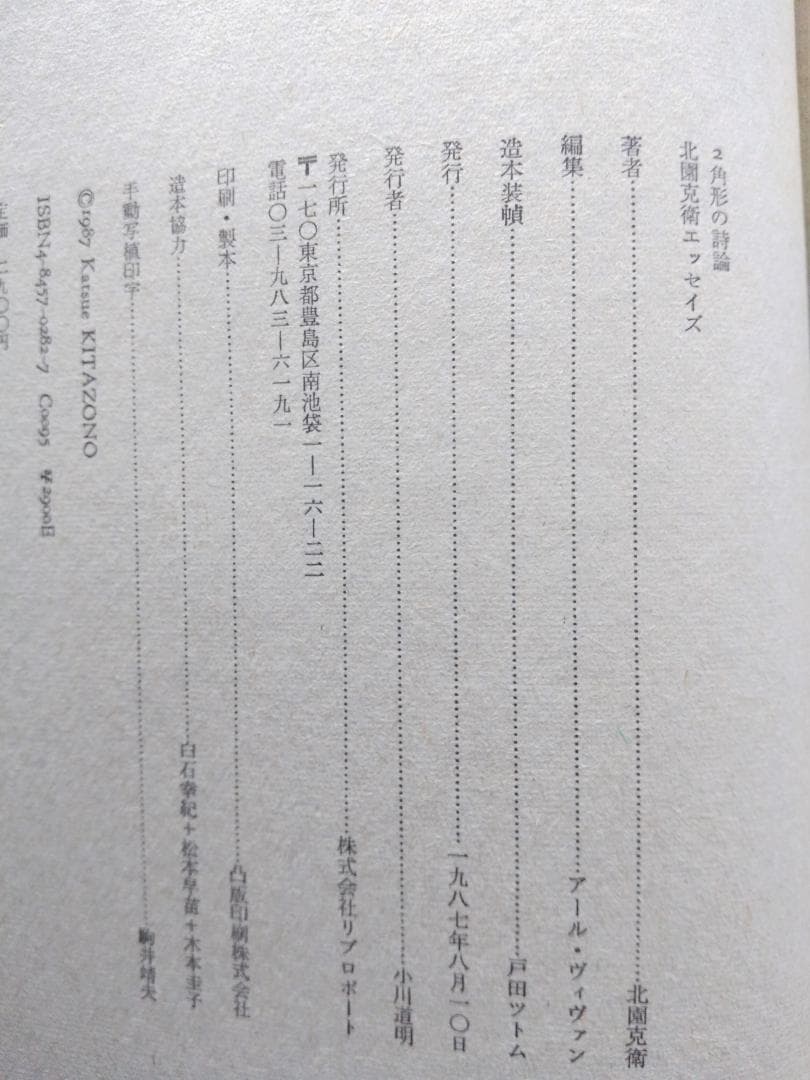 2角形の詩論
北園克衛エッセイズ
著者……北園克衛
編集……アール・ヴィヴァン
造本装幀……戸田ツトム
発行……一九八七年八月一〇日
発行者……小川道明
発行所……株式会社リブロポート
〒一七〇東京都豊島区南池袋一―一六―二二
電話〇三―九八三―六一九一
印刷・製本……凸版印刷株式会社
造本協力……白石幸紀+松本早苗+木本圭子
手動写植印字……駒井靖夫
©1987 Katsue KITAZONO
ISBN4-8457-0282-7 C0095 ¥2900E
定価 二九〇〇円